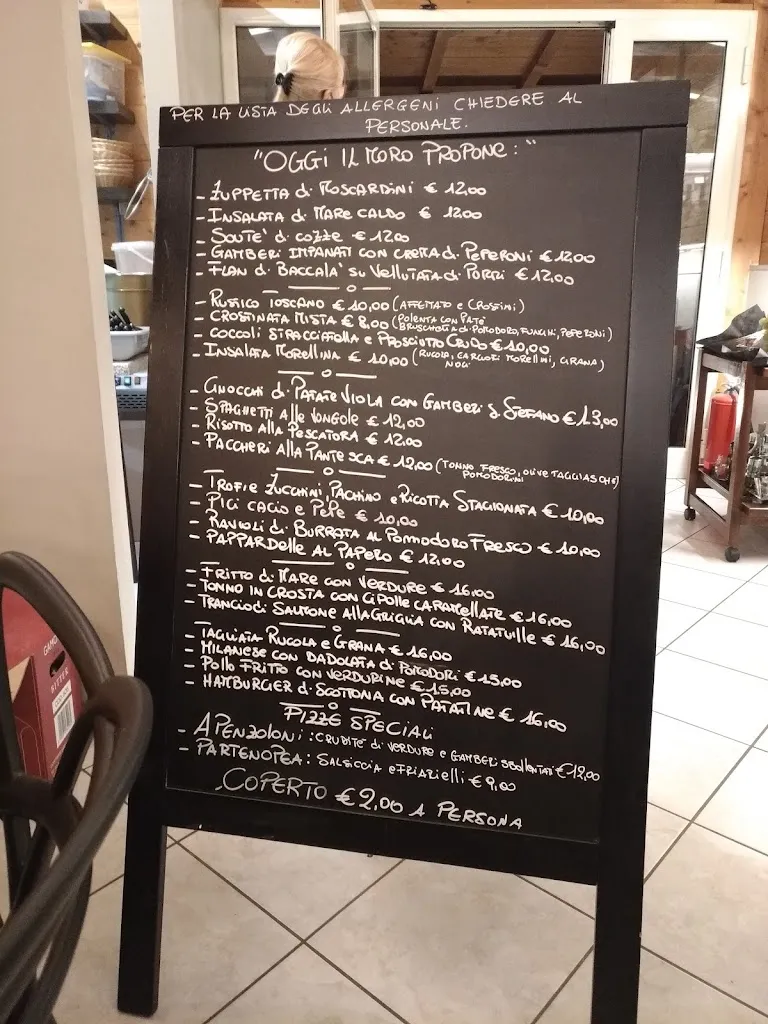 PER LA LISTA DEGLI ALLERGENI CHIEDERE AL
PERSONALE.
"OGGI IL MORO PROPONE:"
- ZUPPETTA di MOSCARDINI € 12,00
- INSALATA di MARE CALDO € 12,00
- SOUTE' di COZZE € 12,00
- GAMBERI IMPANATI CON CREMA di PEPERONI € 12,00
- FLAN di BACCALA' SU VELLUTATA di PORRI € 12,00
- RUSTICO TOSCANO € 10,00 (AFFETTATO e CROSTINI)
- CROSTINATA MISTA € 8,00 (POLENTA CON PATÈ
BRUSCHETTA di POMODORO, FUNGHI, PEPERONI)
- COCCOLI STRACCIATELLA e PROSCIUTTO CRUDO € 10,00
- INSALATA MORELLINA € 10,00 (RUCOLA, CARCIOFI MORELLINI, GRANA)
NOCI
- GNOCCHI di PATATE VIOLA CON GAMBERI S. STEFANO € 13,00
- SPAGHETTI ALLE VONGOLE € 12,00
- RISOTTO ALLA PESCATORA € 12,00
- PACCHERI ALLA PANTESCA € 12,00 (TONNO FRESCO, OLIVE TAGGIASCHE)
POMODORINI
- TROFIE ZUCCHINI, PACHINO e RICOTTA STAGIONATA € 10,00
- PICI CACIO e PEPE € 10,00
- RAVIOLI di BURRATA AL POMODORO FRESCO € 10,00
- PAPPARDELLE AL PAPERO € 12,00
- FRITTO di MARE CON VERDURE € 16,00
- TONNO IN CROSTA CON CIPOLLE CARAMELLATE € 16,00
- TRANCIO di SALMONE ALLA GRIGLIA CON RATATUILLE € 16,00
- TAGLIATA RUCOLA e GRANA € 16,00
- MILANESE CON DADOLATA di POMODORI € 15,00
- POLLO FRITTO CON VERDURINE € 15,00
- HAMBURGER di SCOTTONA CON PATATINE € 16,00
PIZZE SPECIALI
- APENZOLONI: CRUDITÈ di VERDURE e GAMBERI SBOLLENTATI € 12,00
- PARTENOPEA: SALSICCIA e FRIARIELLI € 9,00
COPERTO € 2,00 A PERSONA